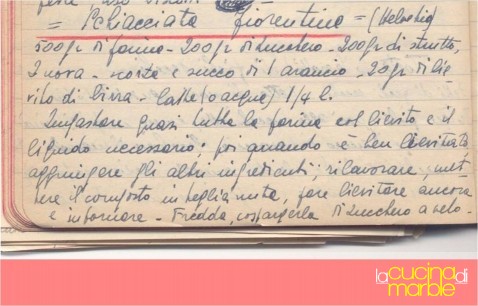 = Schiacciata fiorentina = (Helschig)
500 gr di farina - 200 gr di zucchero - 200 gr di strutto,
2 uova - scorze e succo di 1 arancio - 20 gr di lie
vito di birra - latte (o acqua) 1/4 l.
Impastare quasi tutta la farina col lievito e il
liquido necessario; poi quando è ben lievitata
aggiungere gli altri ingredienti; rilavorare, met
tere il composto in teglia unta, fare lievitare ancora
e infornare - Fredda, cospargerla di zucchero a velo -
la
cucina di
marble